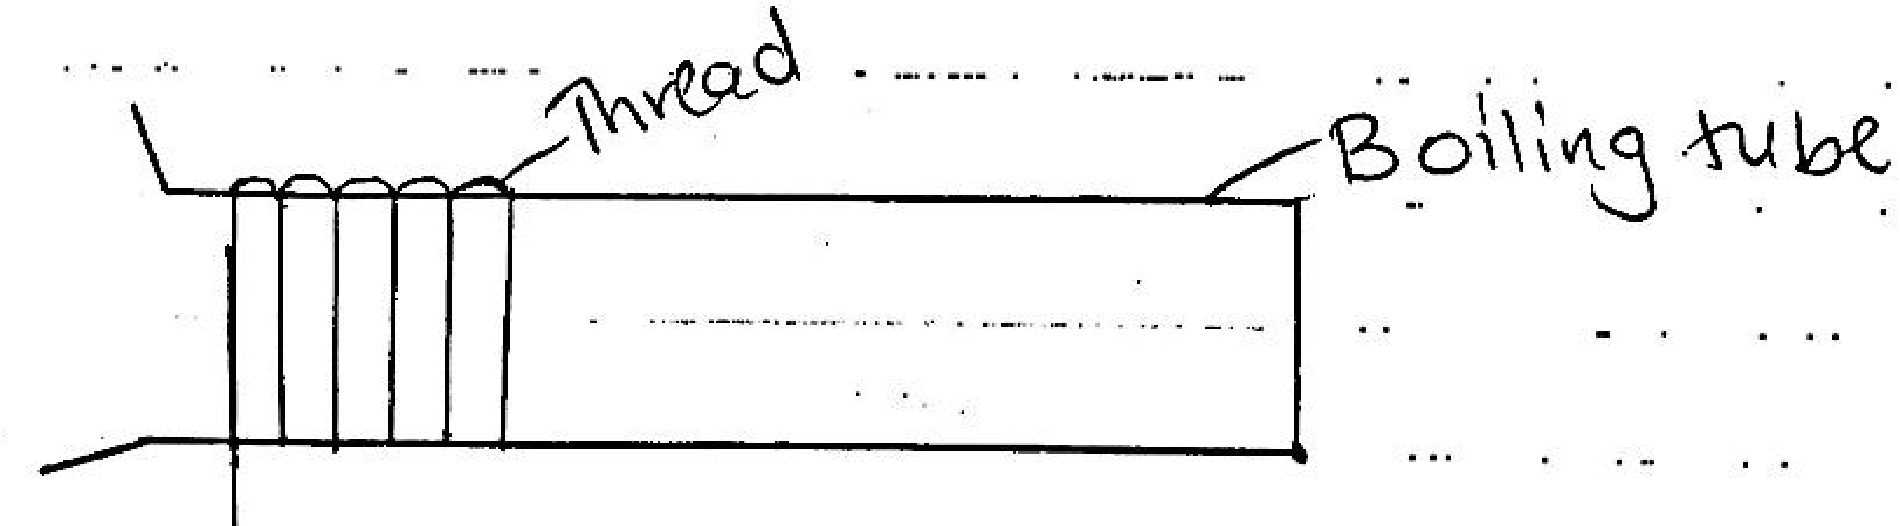 Thread
Boiling tube